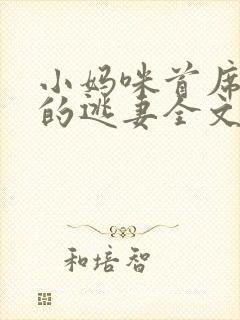 小妈咪首席
的逃妻全文
和培智